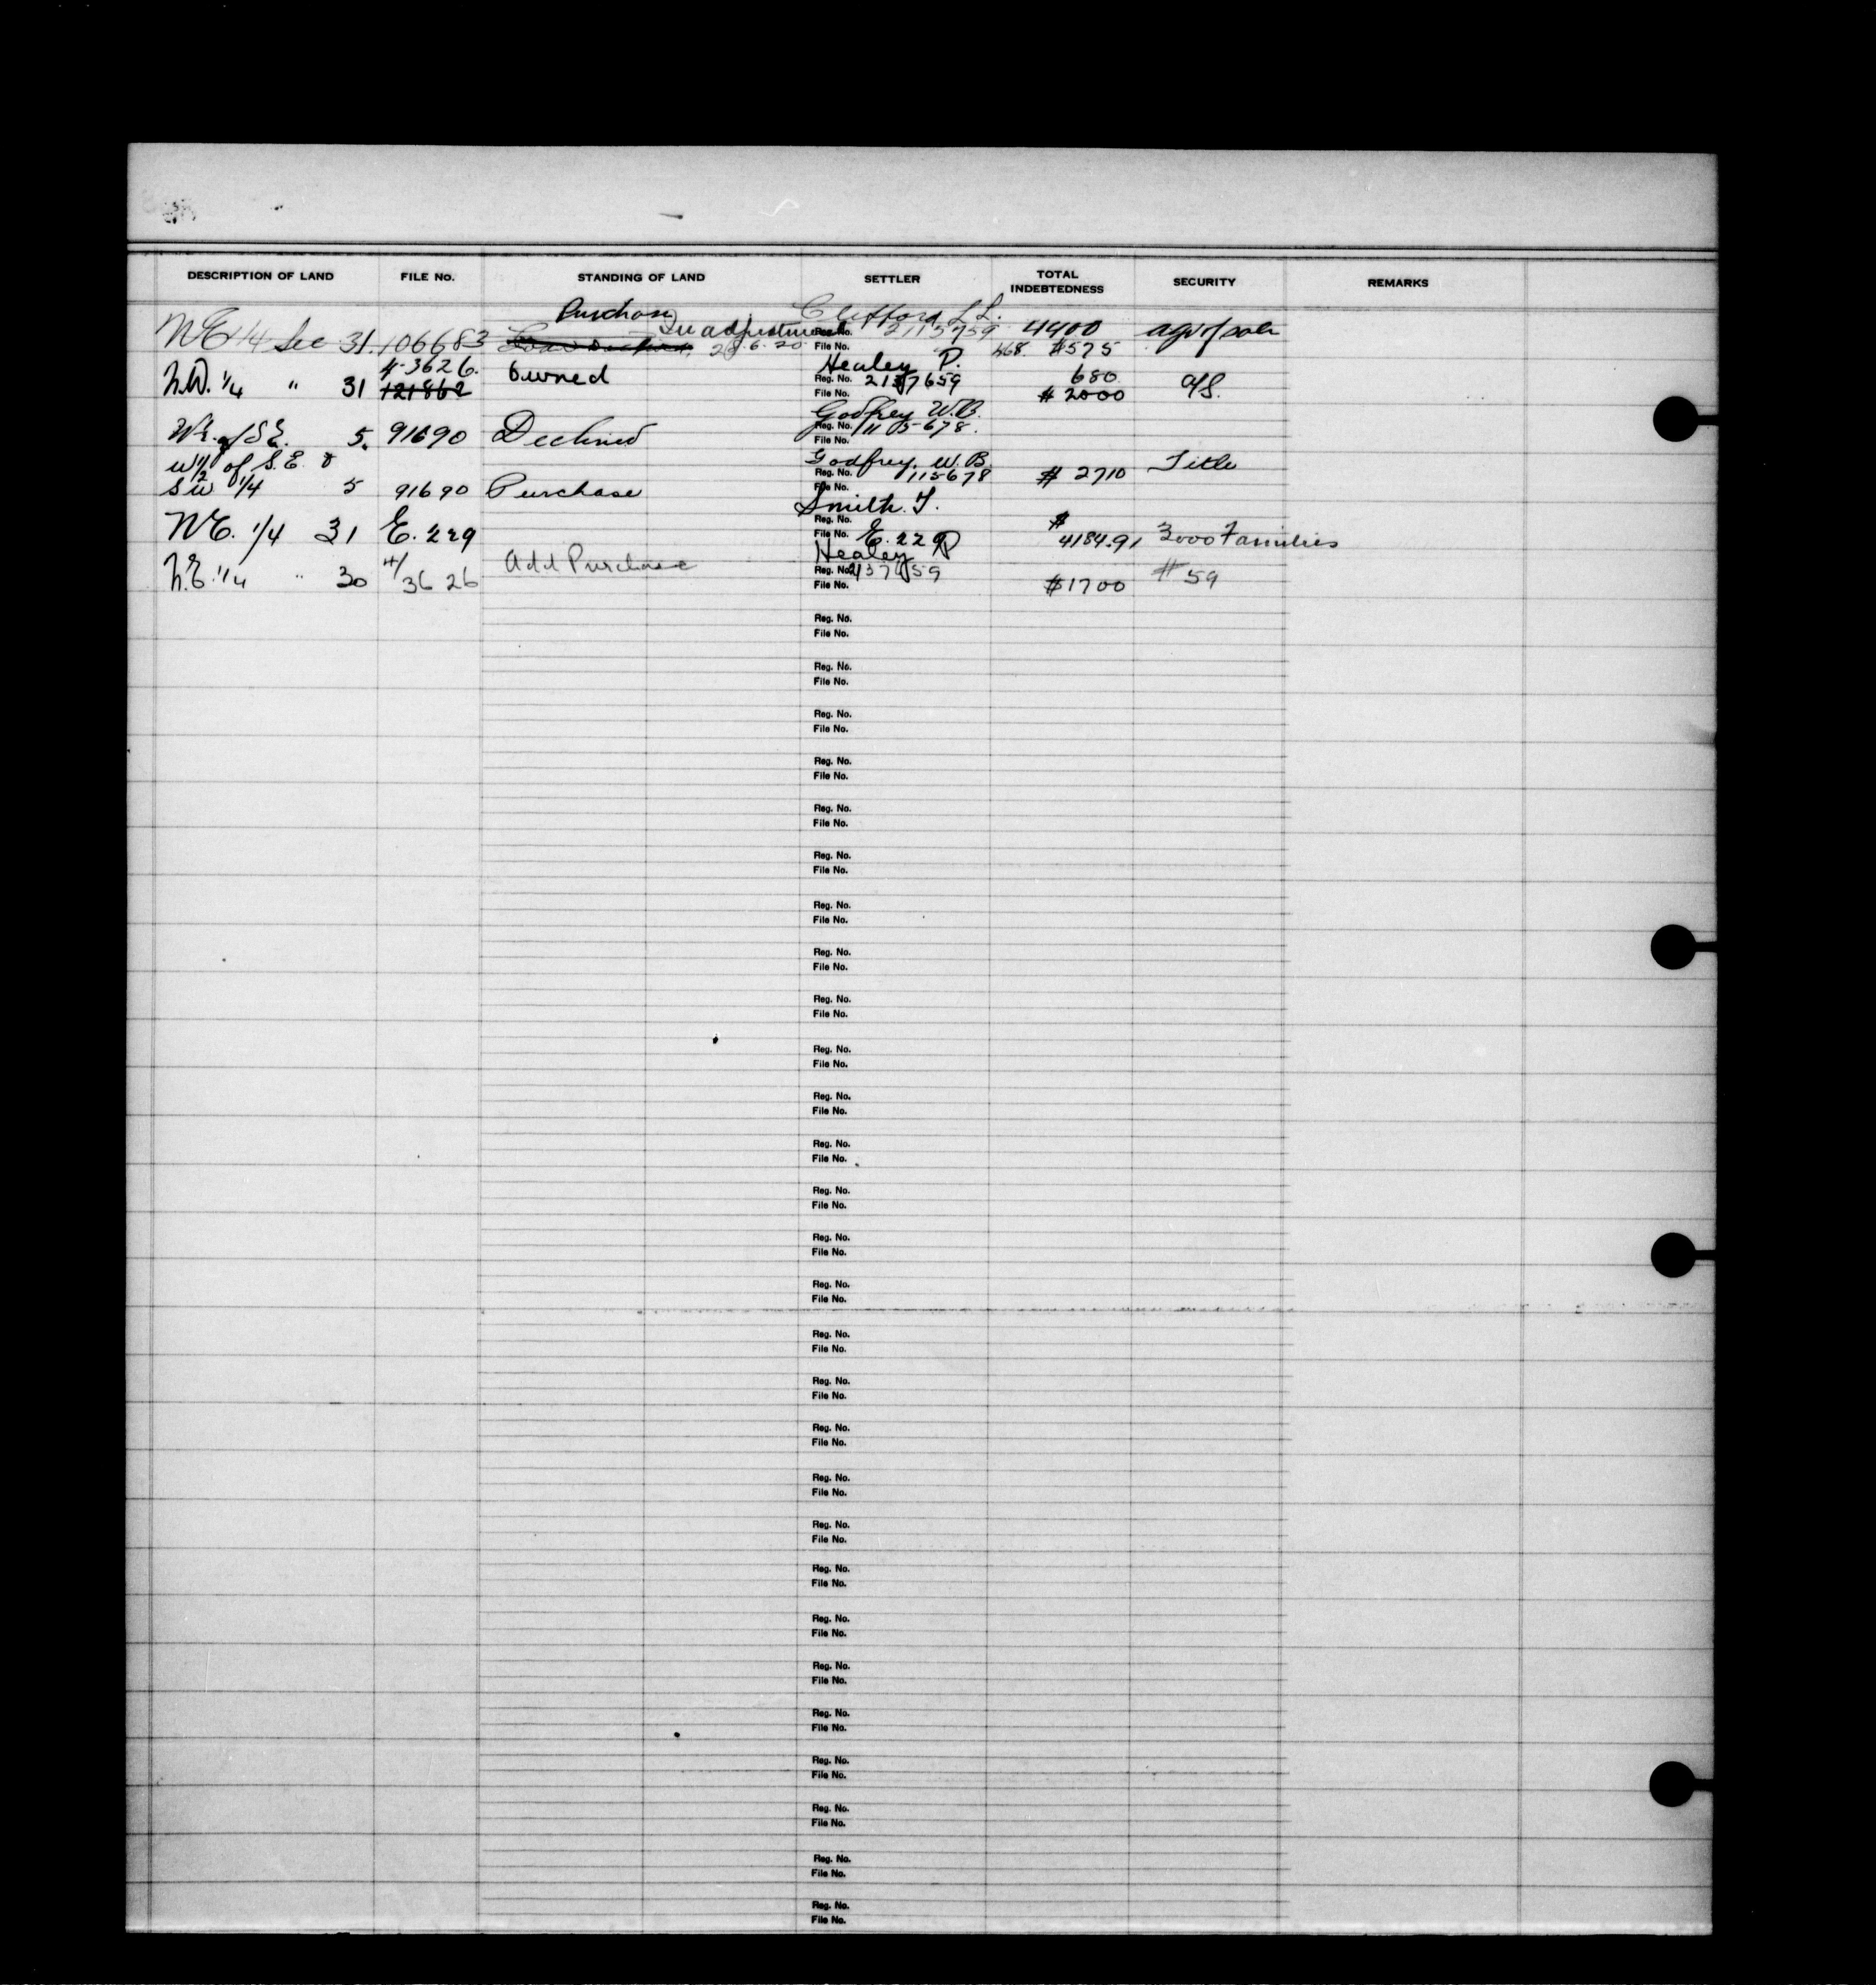 DESCRIPTION OF LAND FILE No. STANDING OF LAND SETTLER TOTAL INDEBTEDNESS SECURITY REMARKS
Purchase Clifford L L.
NE 1/4 Sec 31. 106683 In adjustment Reg. No. 2115759 4400 agr of sale
28.6.20 File No. #575
#3626. Healey P. 680
N.W. 1/4 " 31 121862 Owned Reg. No. 2137659 A/S.
File No. # 2000
Godfrey W.B.
W½ of S.E. 5. 91690 Declined Reg. No. 115678.
File No.
W½ of S.E. & Godfrey. W.B. Title
SW 1/4 5 91690 Purchase Reg. No. 115678 # 2710
File No.
Smith. T.
NE. 1/4 31 E. 229 Reg. No. $
File No. E. 229 4184.91 3000 Families
4/ Add Purchase Healey P
N.E. 1/4 " 30 3626 Reg. No. 2137659 # 59
File No. $1700
Reg. No.
File No.
Reg. No.
File No.
Reg. No.
File No.
Reg. No.
File No.
Reg. No.
File No.
Reg. No.
File No.
Reg. No.
File No.
Reg. No.
File No.
Reg. No.
File No.
Reg. No.
File No.
Reg. No.
File No.
Reg. No.
File No.
Reg. No.
File No.
Reg. No.
File No.
Reg. No.
File No.
Reg. No.
File No.
Reg. No.
File No.
Reg. No.
File No.
Reg. No.
File No.
Reg. No.
File No.
Reg. No.
File No.
Reg. No.
File No.
Reg. No.
File No.
Reg. No.
File No.
Reg. No.
File No.
Reg. No.
File No.
Reg. No.
File No.
Reg. No.
File No.